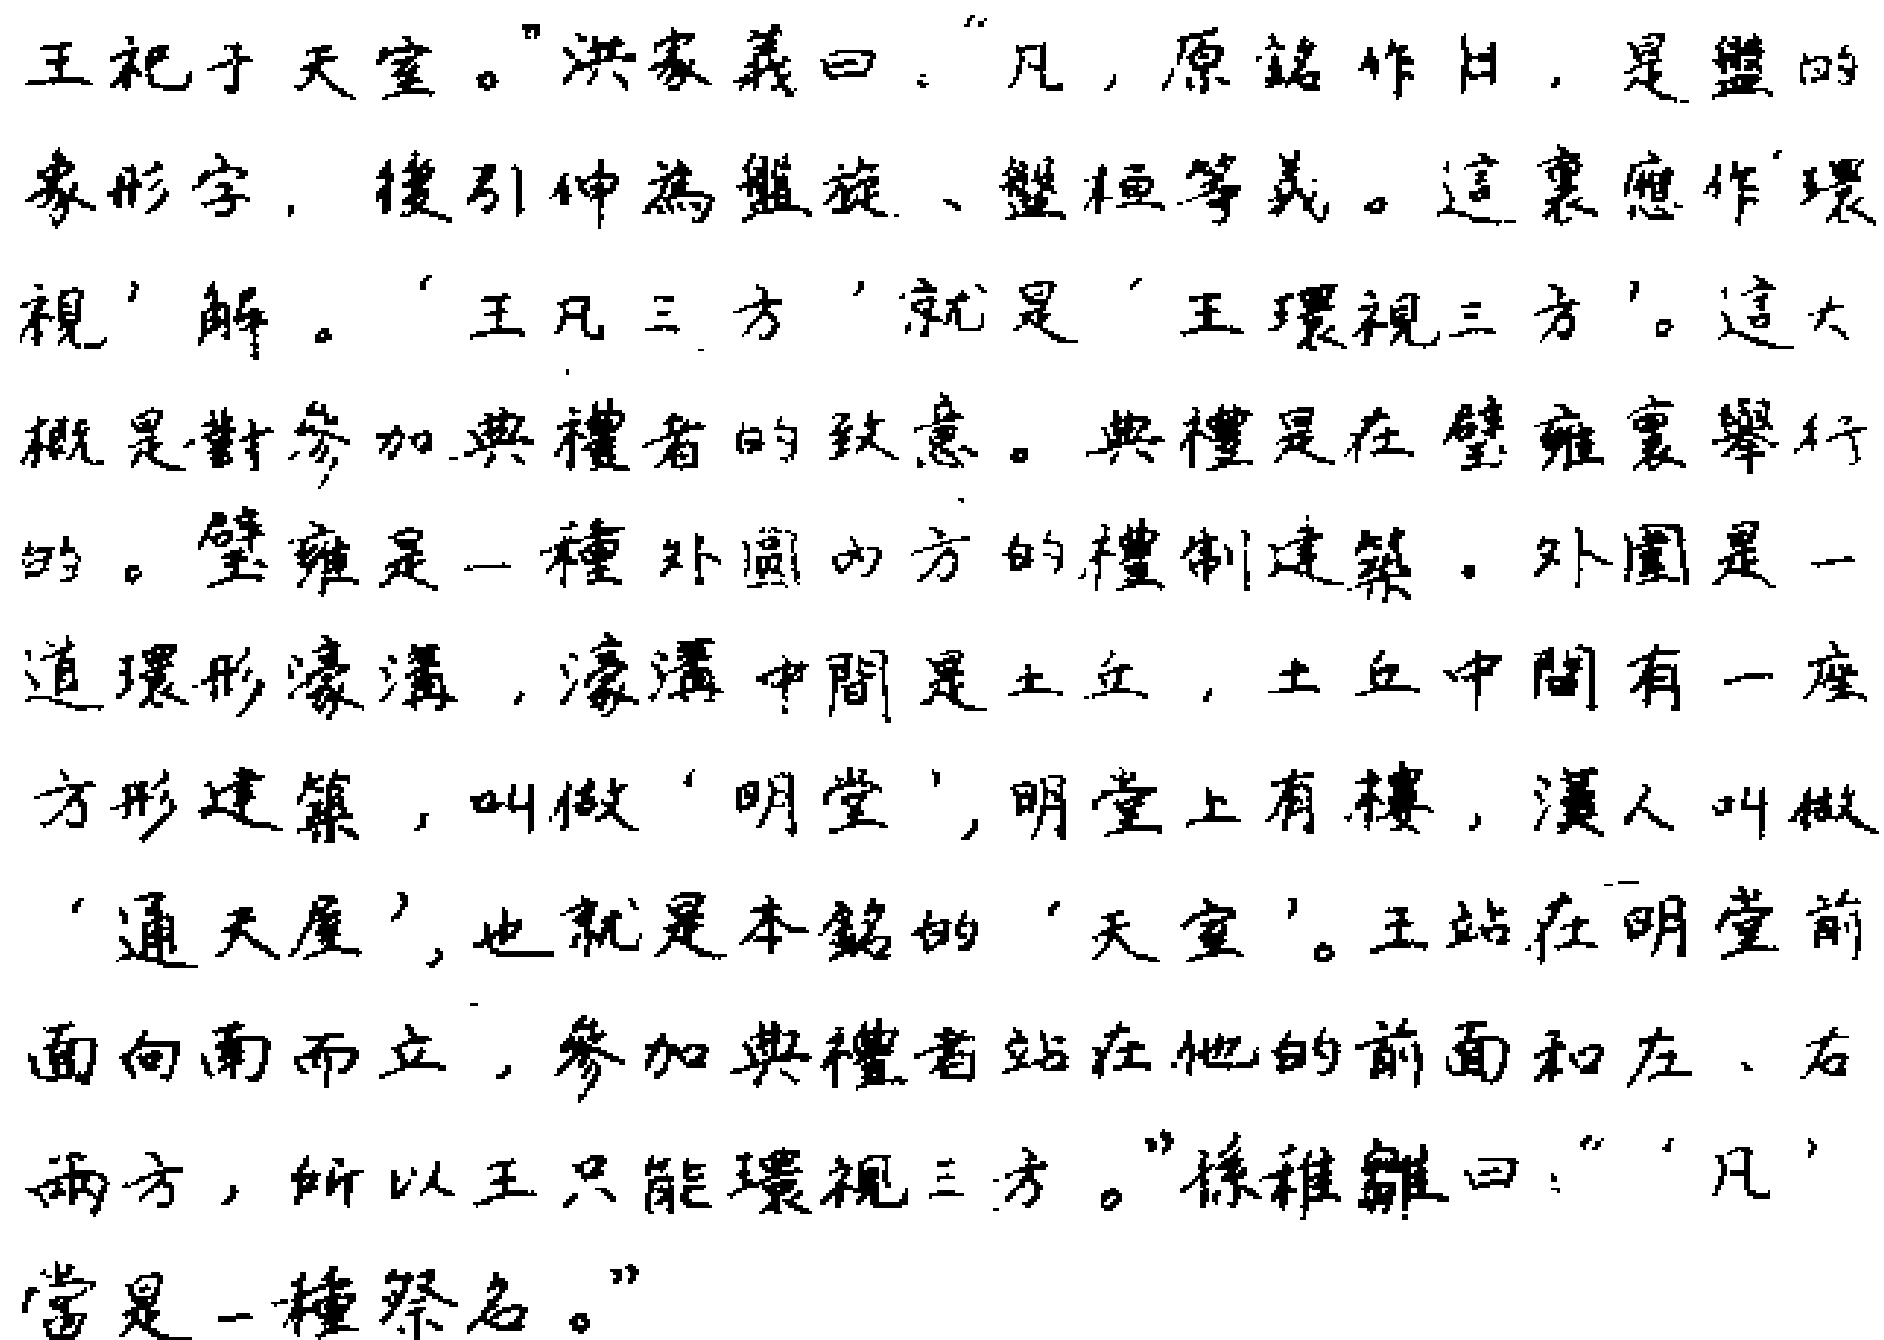 王祀于天室。”洪家義曰：“凡，原銘作，是盤的
象形字，後引伸為盤旋、盤桓等義。這裏應作‘環
視’解。‘王凡三方’就是‘王環視三方’。這大
概是對參加典禮者的致意。典禮是在璧雍裏舉行
的。璧雍是一種外圓内方的禮制建築。外圍是一
道環形濠溝，濠溝中間是土丘，土丘中間有一座
方形建築，叫做‘明堂’，明堂上有樓，漢人叫做
‘通天屋’，也就是本銘的‘天室’。王站在明堂前
面向南而立，參加典禮者站在他的前面和左、右
兩方，所以王只能環視三方。”孫稚雛曰：“‘凡’
當是一種祭名。”